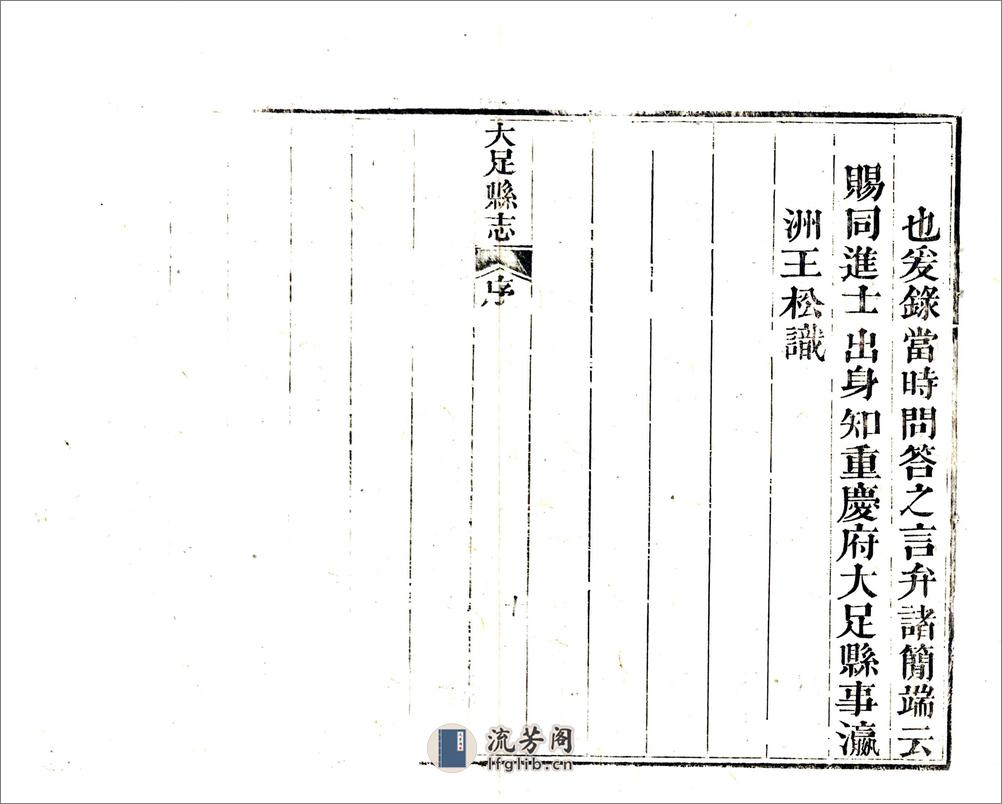 也爰錄當時問答之言弁諸簡端云
賜同進士出身知重慶府大足縣事瀛
洲王松識
大足縣志
序
流芳阁
lfglib.cn